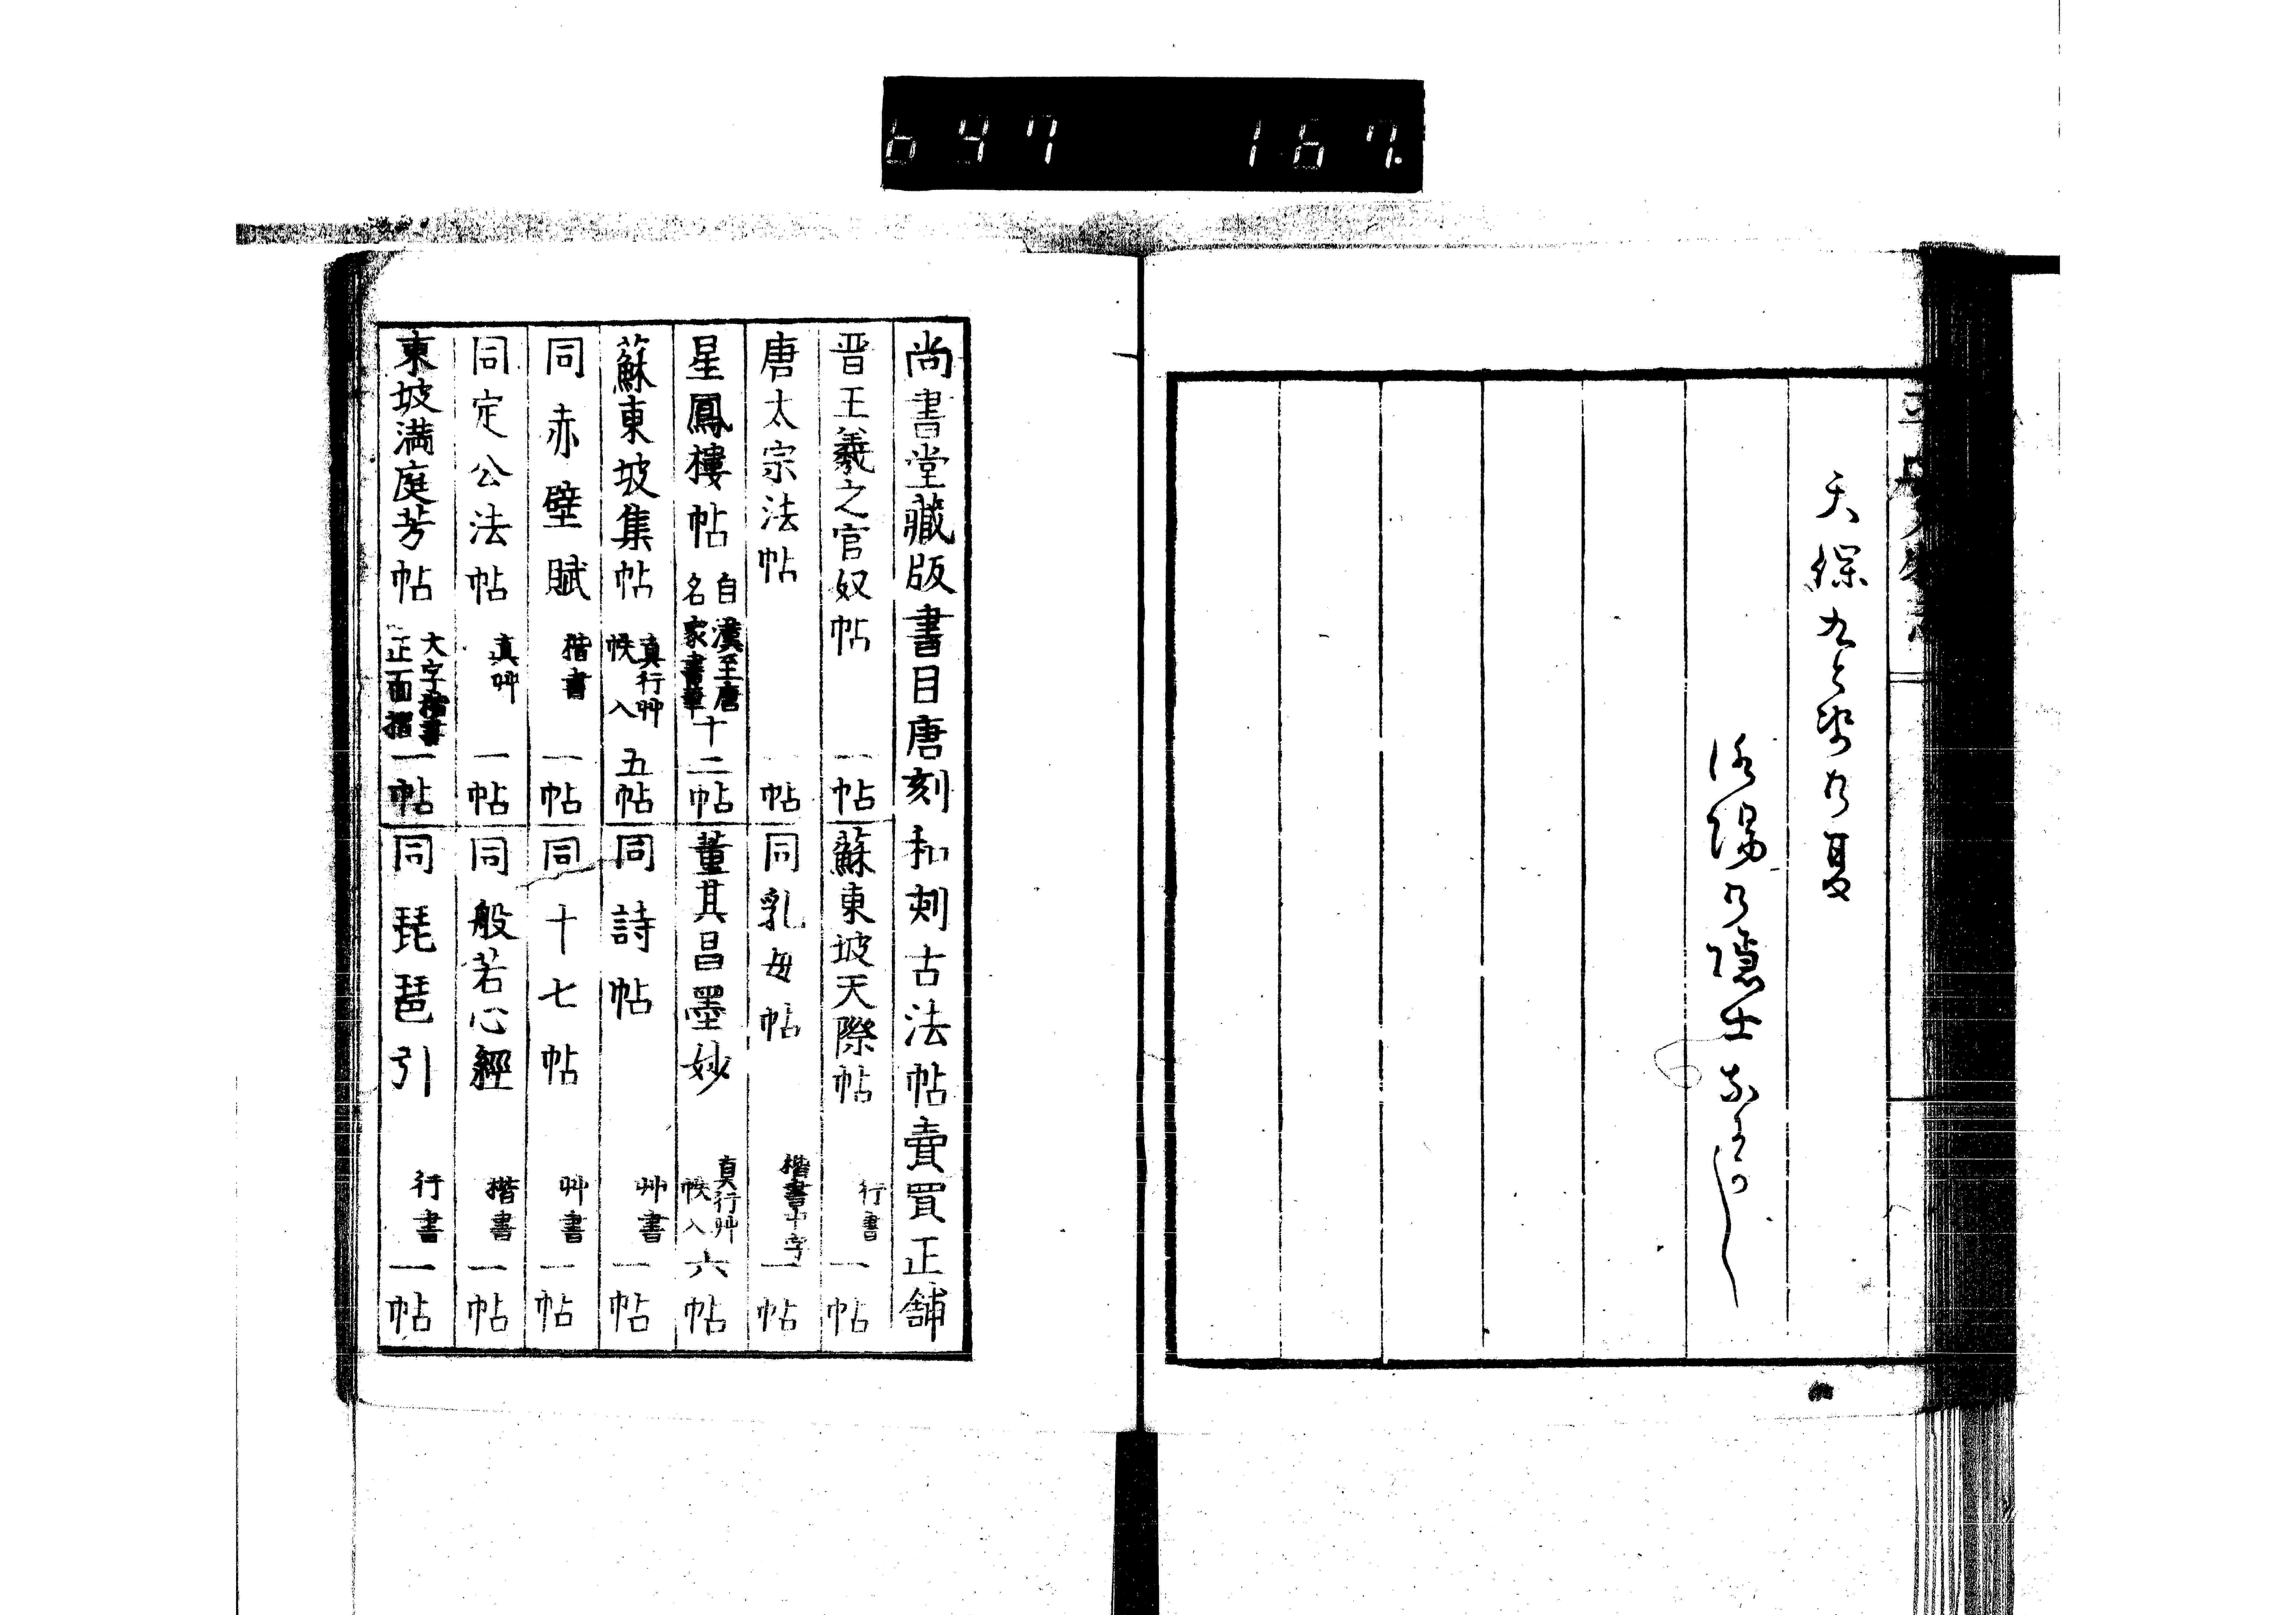 647 167.
天保九之歳九夏
洛陽乃隠士
尚書堂藏版書目唐刻和刻古法帖賣買正舗
晋王羲之官奴帖 一帖
蘇東坡天際帖 行書 一帖
唐太宗法帖 一帖
同乳母帖 楷書中字 一帖
星鳳樓帖 自漢至唐名家書華 十二帖
董其昌墨妙 真行艸帙入 六帖
蘇東坡集帖 真行艸帙入 五帖
同詩帖 艸書 一帖
同赤壁賦 楷書 一帖
同十七帖 艸書 一帖
同定公法帖 真艸 一帖
同般若心經 楷書 一帖
東坡満庭芳帖 大字楷書正面摺 一帖
同琵琶引 行書 一帖